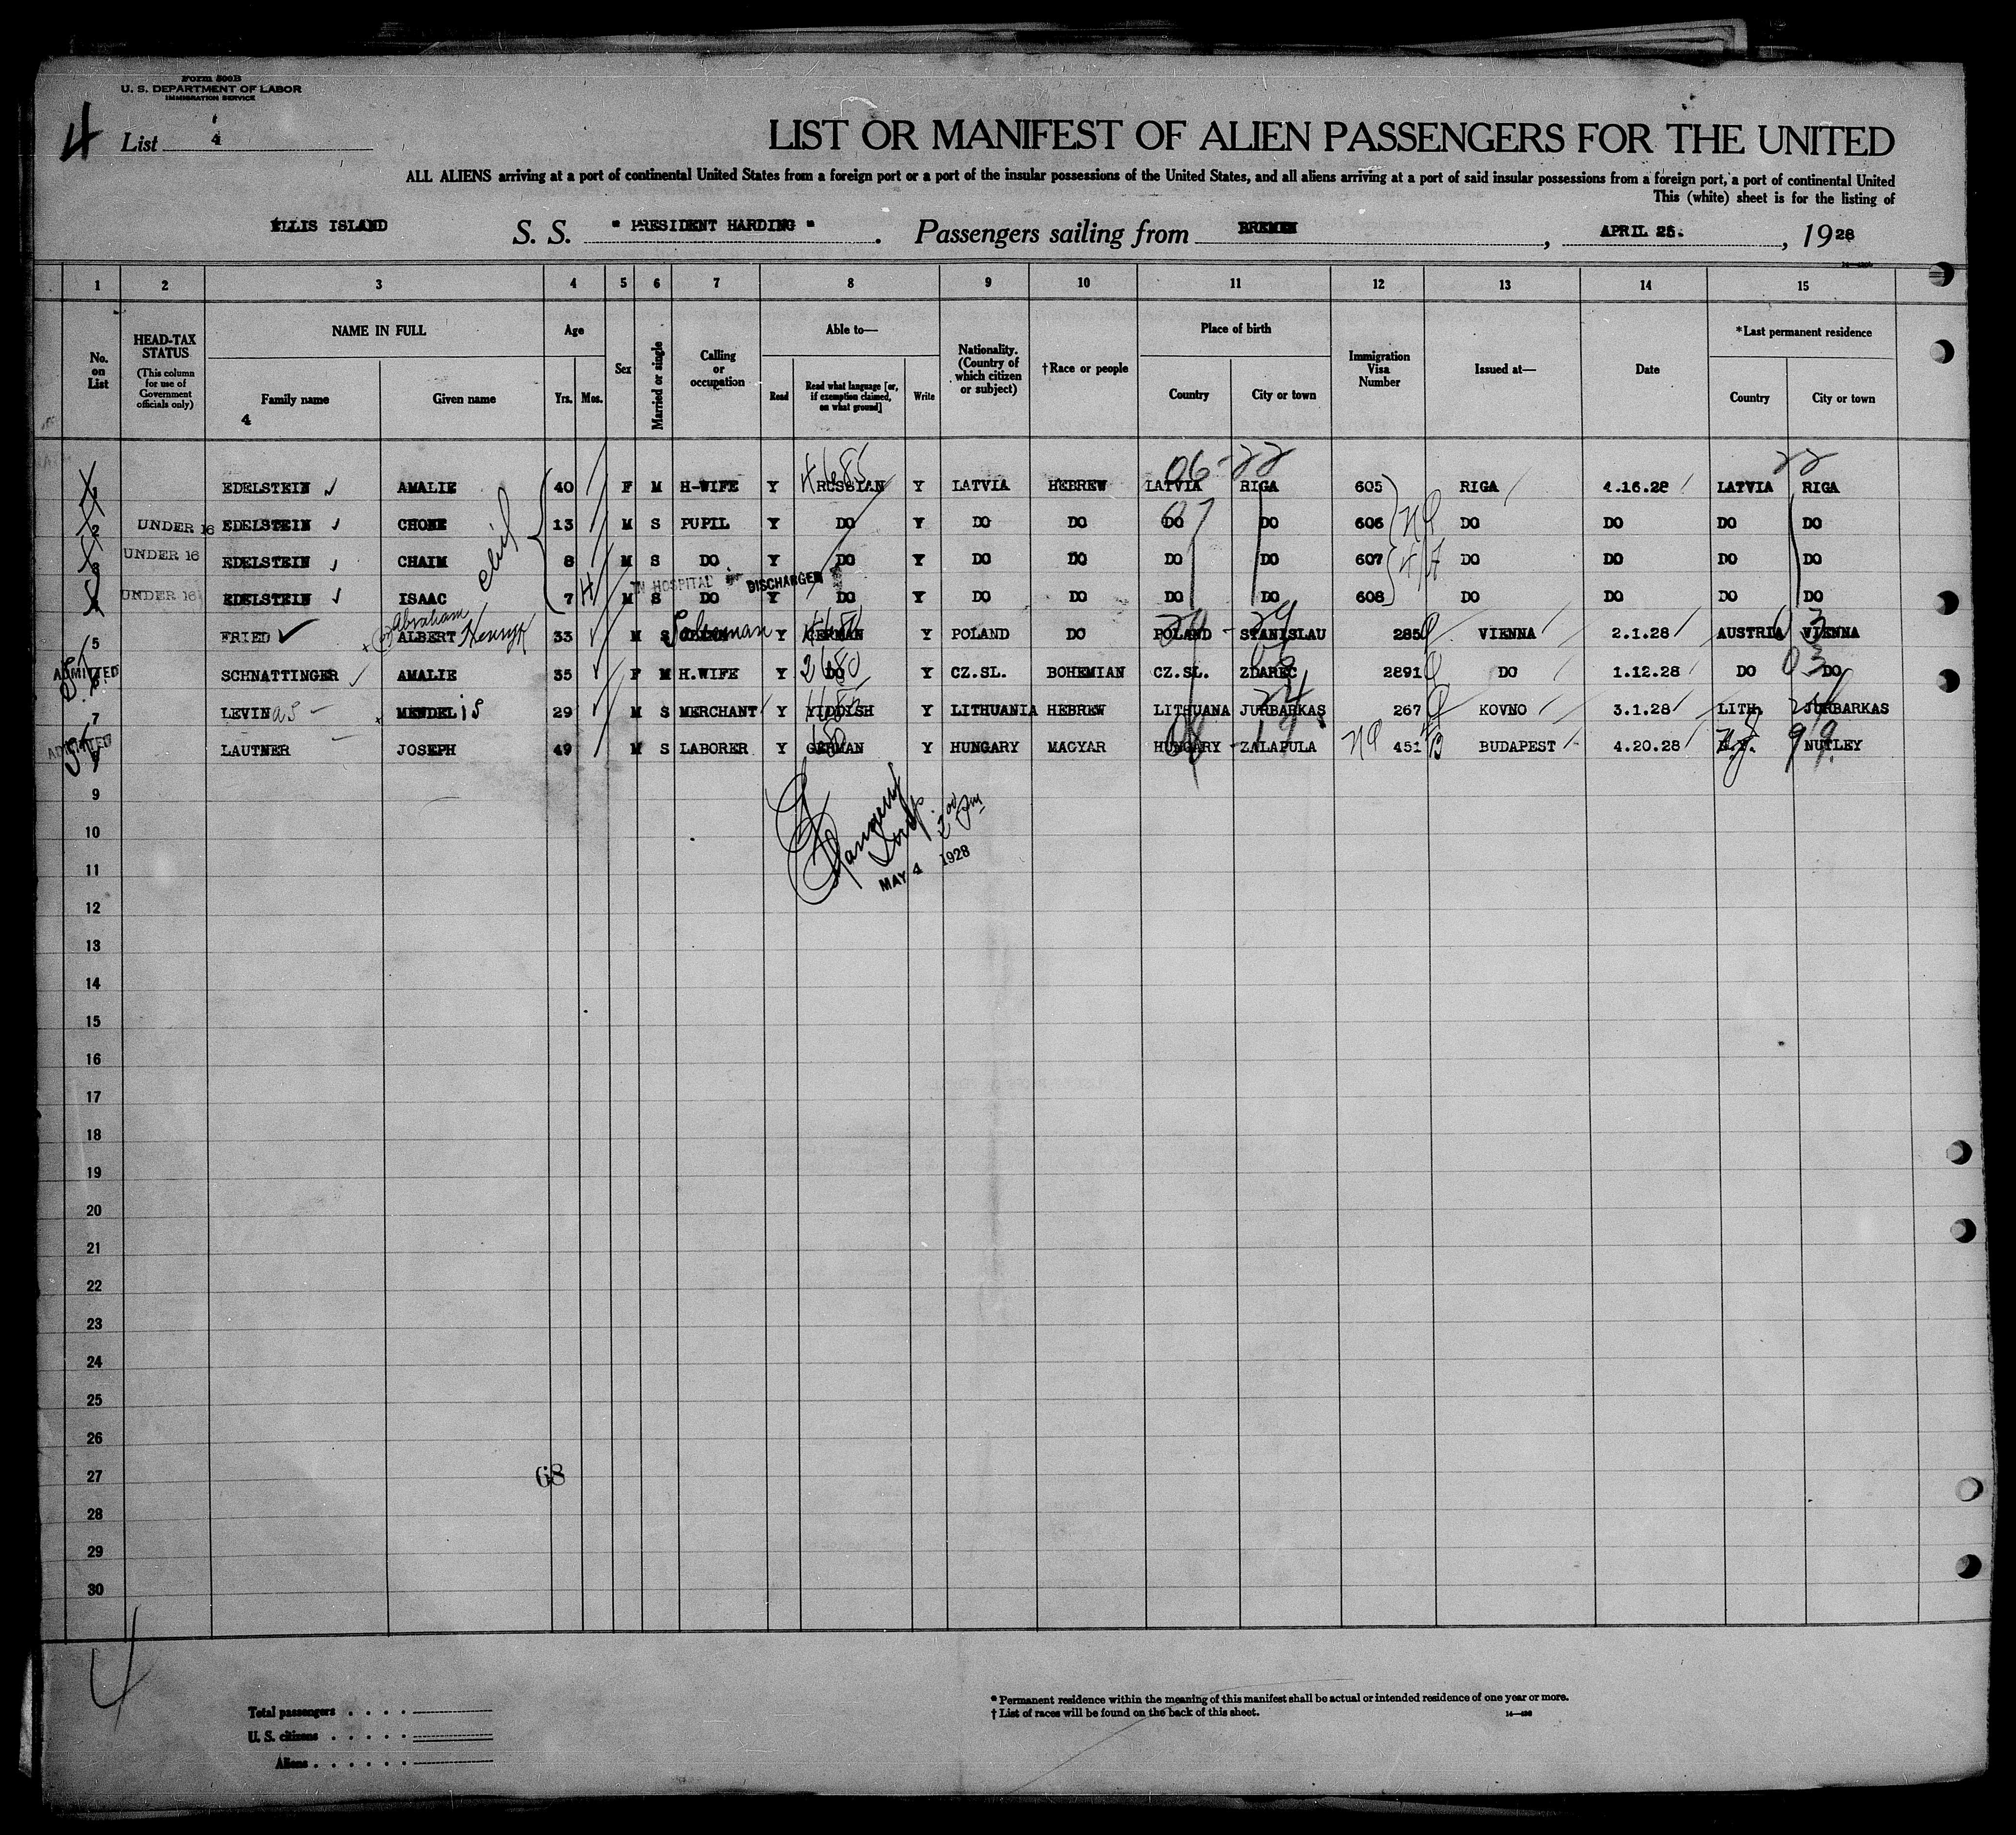 Form 500B
U. S. DEPARTMENT OF LABOR
IMMIGRATION SERVICE
4 List 4
LIST OR MANIFEST OF ALIEN PASSENGERS FOR THE UNITED
ALL ALIENS arriving at a port of continental United States from a foreign port or a port of the insular possessions of the United States, and all aliens arriving at a port of said insular possessions from a foreign port, a port of continental United
This (white) sheet is for the listing of
ELLIS ISLAND S. S. " PRESIDENT HARDING " . Passengers sailing from BREMEN , APRIL 25. , 1928
1 2 3 4 5 6 7 8 9 10 11 12 13 14 15
No. on List
HEAD-TAX STATUS (This column for use of Government officials only)
NAME IN FULL
Family name
Given name
4
Age
Yrs. Mos.
Sex
Married or single
Calling or occupation
Able to—
Read
Read what language [or, if exemption claimed, on what ground]
Write
Nationality. (Country of which citizen or subject)
†Race or people
Place of birth
Country
City or town
Immigration Visa Number
Issued at—
Date
*Last permanent residence
Country
City or town
06-22 22
EDELSTEIN AMALIE 40 F M H-WIFE Y RUSSIAN Y LATVIA HEBREW LATVIA RIGA 605 RIGA 4.16.28 LATVIA RIGA
2 UNDER 16 EDELSTEIN CHONE 13 M S PUPIL Y DO Y DO DO DO DO 606 DO DO DO DO
UNDER 16 EDELSTEIN CHAIM 8 M S DO Y DO Y DO DO DO DO 607 DO DO DO DO
IN HOSPITAL DISCHARGED
UNDER 16 EDELSTEIN ISAAC 7 M S DO Y DO Y DO DO DO DO 608 DO DO DO DO
Abraham
5 FRIED ALBERT Henryk 33 M S Salesman Y GERMAN Y POLAND DO POLAND STANISLAU 285 VIENNA 2.1.28 AUSTRIA VIENNA
ADMITTED SCHNATTINGER AMALIE 35 F M H.WIFE Y DO Y CZ.SL. BOHEMIAN CZ.SL. ZDAREC 2891 DO 1.12.28 DO DO
7 LEVINas MENDELis 29 M S MERCHANT Y YIDDISH Y LITHUANIA HEBREW LITHUANA JURBARKAS 267 KOVNO 3.1.28 LITH. JURBARKAS
ADMITTED LAUTNER JOSEPH 49 M S LABORER Y GERMAN Y HUNGARY MAGYAR HUNGARY ZALAPULA 451 BUDAPEST 4.20.28 NUTLEY
MAY 4 1928
9
10
11
12
13
14
15
16
17
18
19
20
21
22
23
24
25
26
27 68
28
29
30
4
Total passengers
U. S. citizens
Aliens
* Permanent residence within the meaning of this manifest shall be actual or intended residence of one year or more.
† List of races will be found on the back of this sheet.